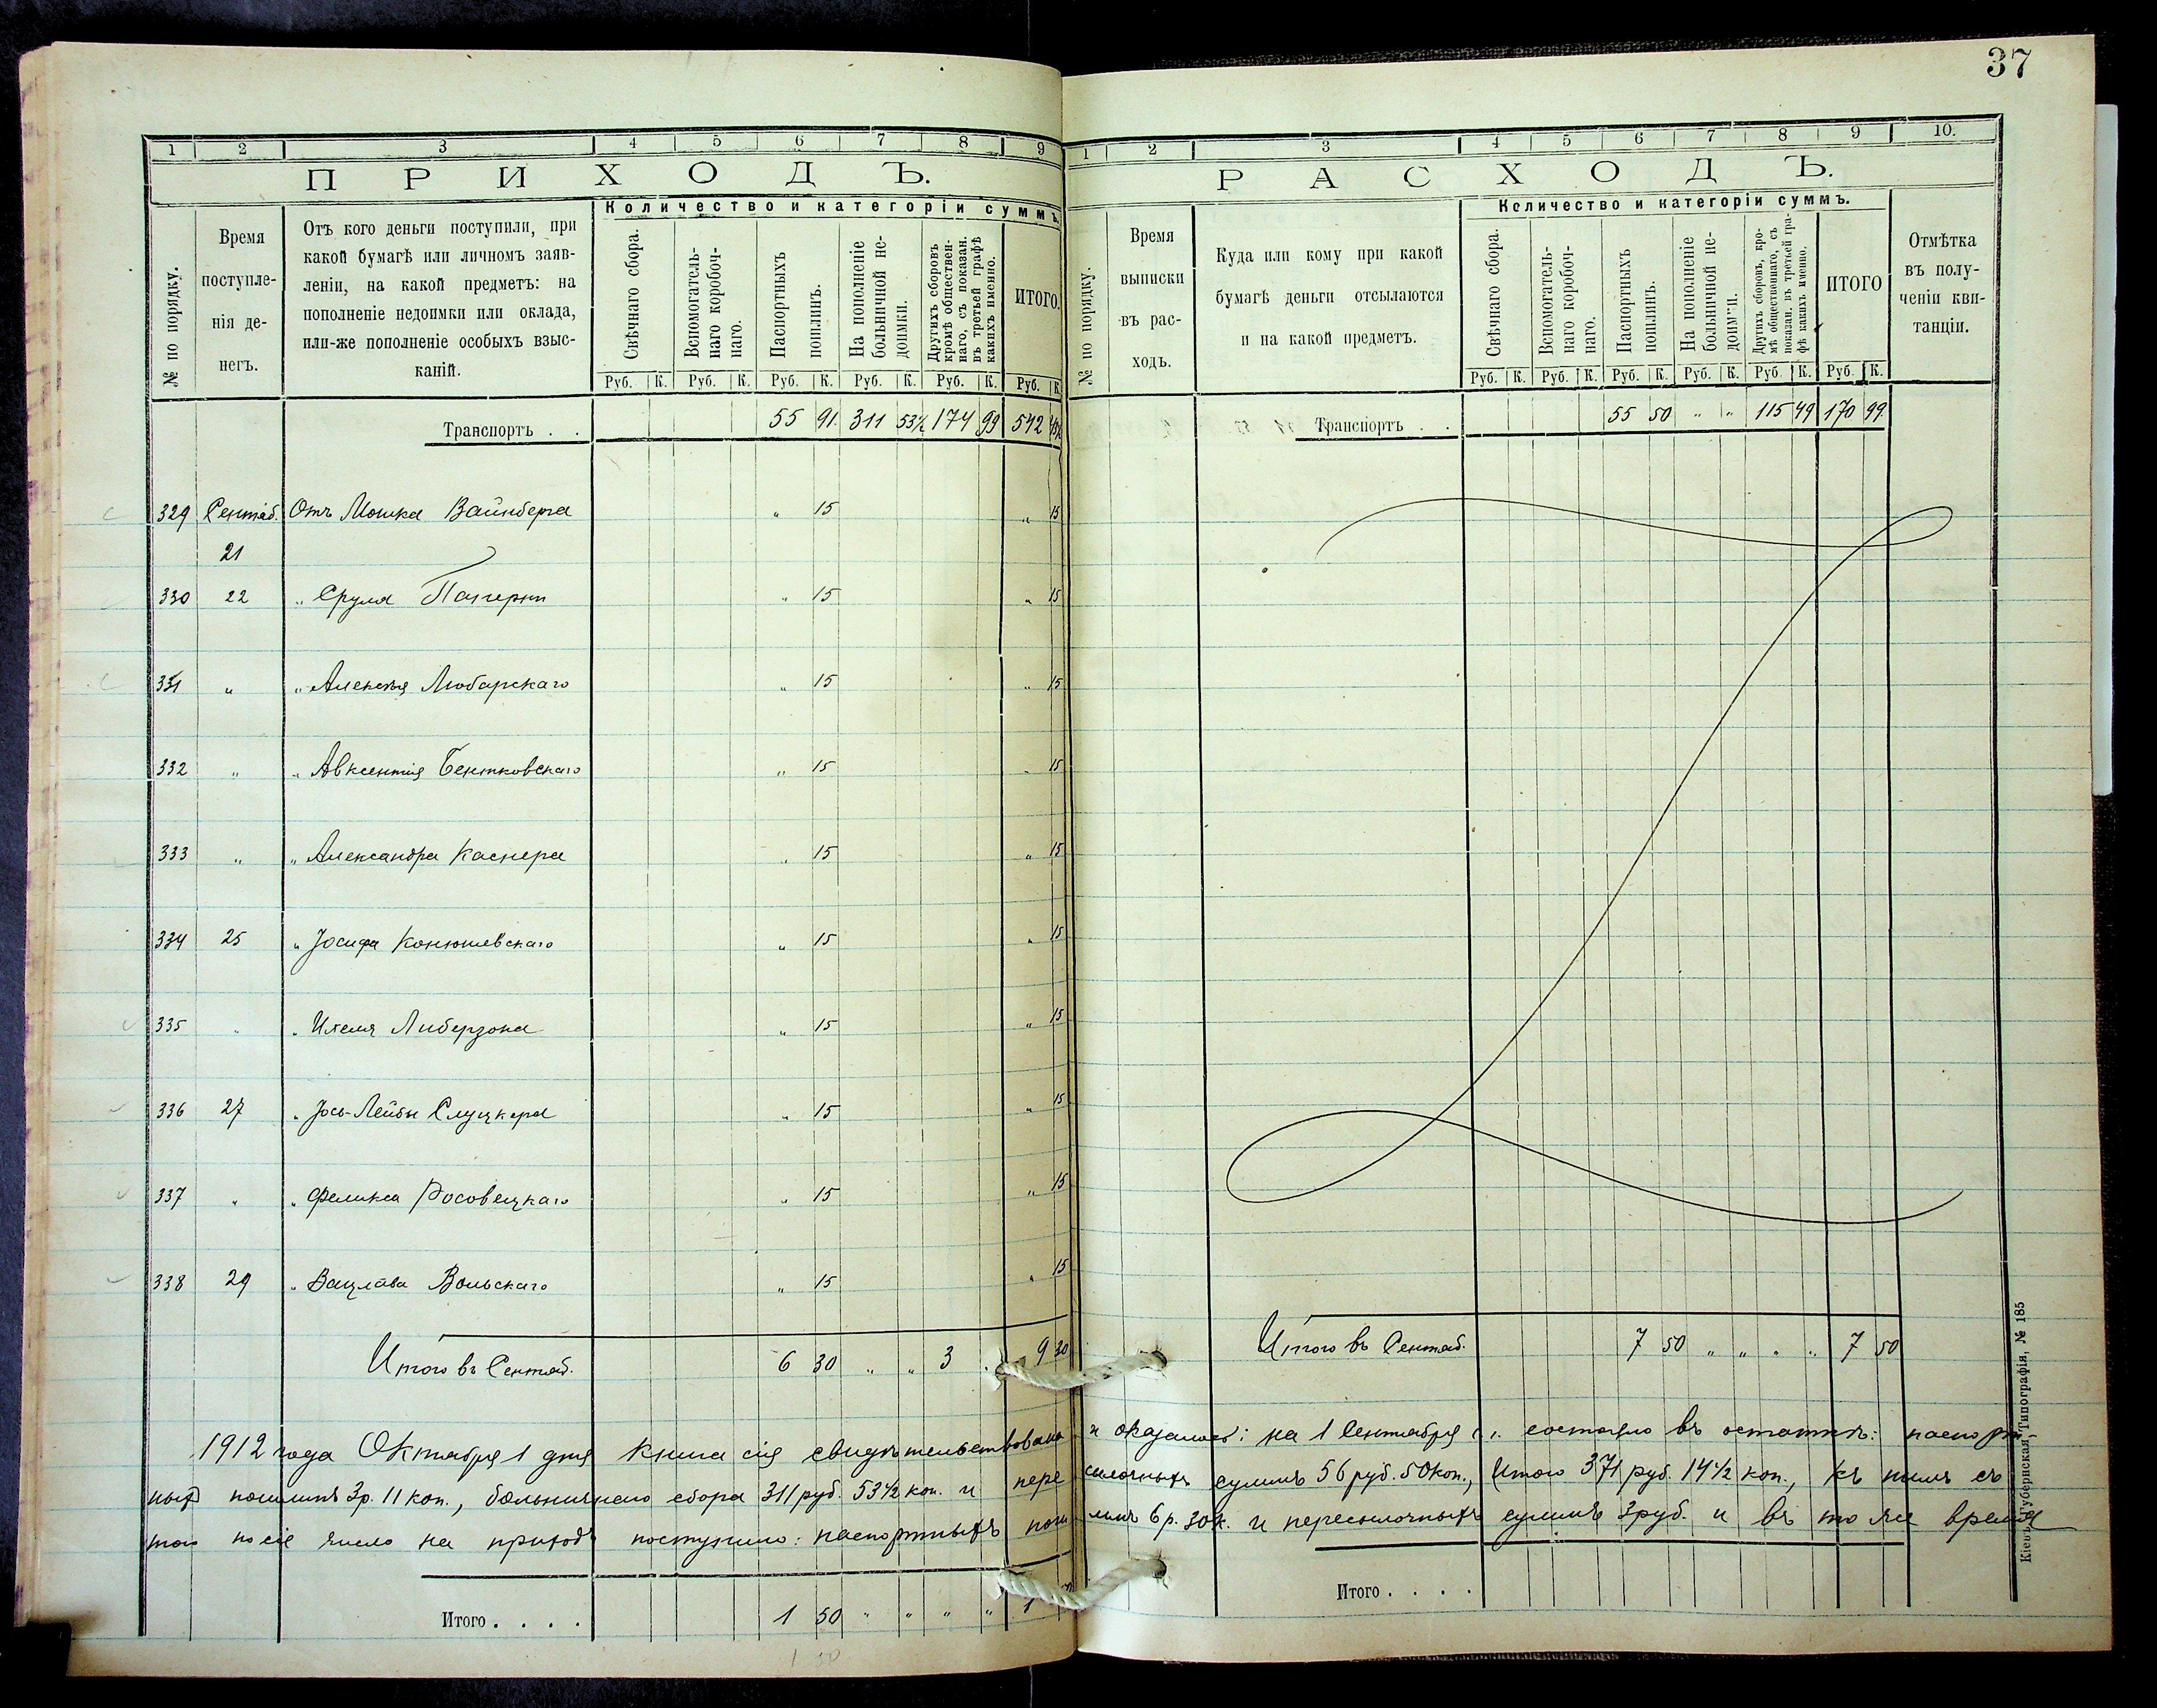 37
1 2 3 4 5 6 7 8 9
ПРИХОДЪ.
Количество и категоріи суммъ.
№ по порядку.
Время
поступле-
нія де-
негъ.
Отъ кого деньги поступили, при
какой бумагѣ или личномъ заяв-
леніи, на какой предметъ: на
пополненіе недоимки или оклада,
или-же пополненіе особыхъ взыс-
каній.
Свѣчнаго сбора.
Вспомогатель-
наго коробоч-
наго.
Паспортныхъ
пошлинъ.
На пополненіе
больничной не-
доимки.
Другихъ сборовъ
кромѣ обществен-
наго, съ показан.
въ третьей графѣ
какихъ именно.
ИТОГО.
Руб. К. Руб. К. Руб. К. Руб. К. Руб. К. Руб. К.
Транспортъ . . 55 91 311 53½ 174 99 542
329 Сентяб. Отъ Мошка Вайнберга " 15 " 15
21
330 22 " Сруля " 15 " 15
331 " " Алексѣя Любарскаго " 15 " 15
332 " " Авксентія Бентковскаго " 15 " 15
333 " " Александра Каснера " 15 " 15
334 25 " Іосифа Конюшевскаго " 15 " 15
335 " " Ихеля Либерзона " 15 " 15
336 27 " Іось-Лейбы Слуцкера " 15 " 15
337 " " Феликса Росовецкаго " 15 " 15
338 29 " Вацлава Вольскаго " 15 " 15
Итого въ Сентяб. 6 30 " " 3 " 9 30
1 2 3 4 5 6 7 8 9 10.
РАСХОДЪ.
Количество и категоріи суммъ.
№ по порядку.
Время
выписки
въ рас-
ходъ.
Куда или кому при какой
бумагѣ деньги отсылаются
и на какой предметъ.
Свѣчнаго сбора.
Вспомогатель-
наго коробоч-
наго.
Паспортныхъ
пошлинъ.
На пополненіе
больничной не-
доимки.
Другихъ сборовъ, кро-
мѣ общественнаго, съ
показан. въ третьей гра-
фѣ какихъ именно.
ИТОГО
Отмѣтка
въ полу-
ченіи кви-
танціи.
Руб. К. Руб. К. Руб. К. Руб. К. Руб. К. Руб. К.
Транспортъ . . 55 50 " " 115 49 170 99
Итого въ Сентяб. 7 50 " " " " 7 50
1912 года Октября 1 дня книга сія свидѣтельствована и оказалось: на 1 Сентября с.г. состояло въ остаткѣ: паспорт-
ныхъ пошлинъ 3р. 11 коп., больничнаго сбора 311 руб. 53½ коп. и пере сылочныхъ суммъ 56 руб. 50 коп., Итого 371 руб. 14½ коп., къ нимъ съ
того по сіе число на приходъ поступило: паспортныхъ пош линъ 6 р. 30 к. и пересылочныхъ суммъ 3 руб. и въ то же время
Итого . . . . 1 50 " " " " 1
1 50
Итого . . . .
Кіевъ, Губернская Типографія, № 185